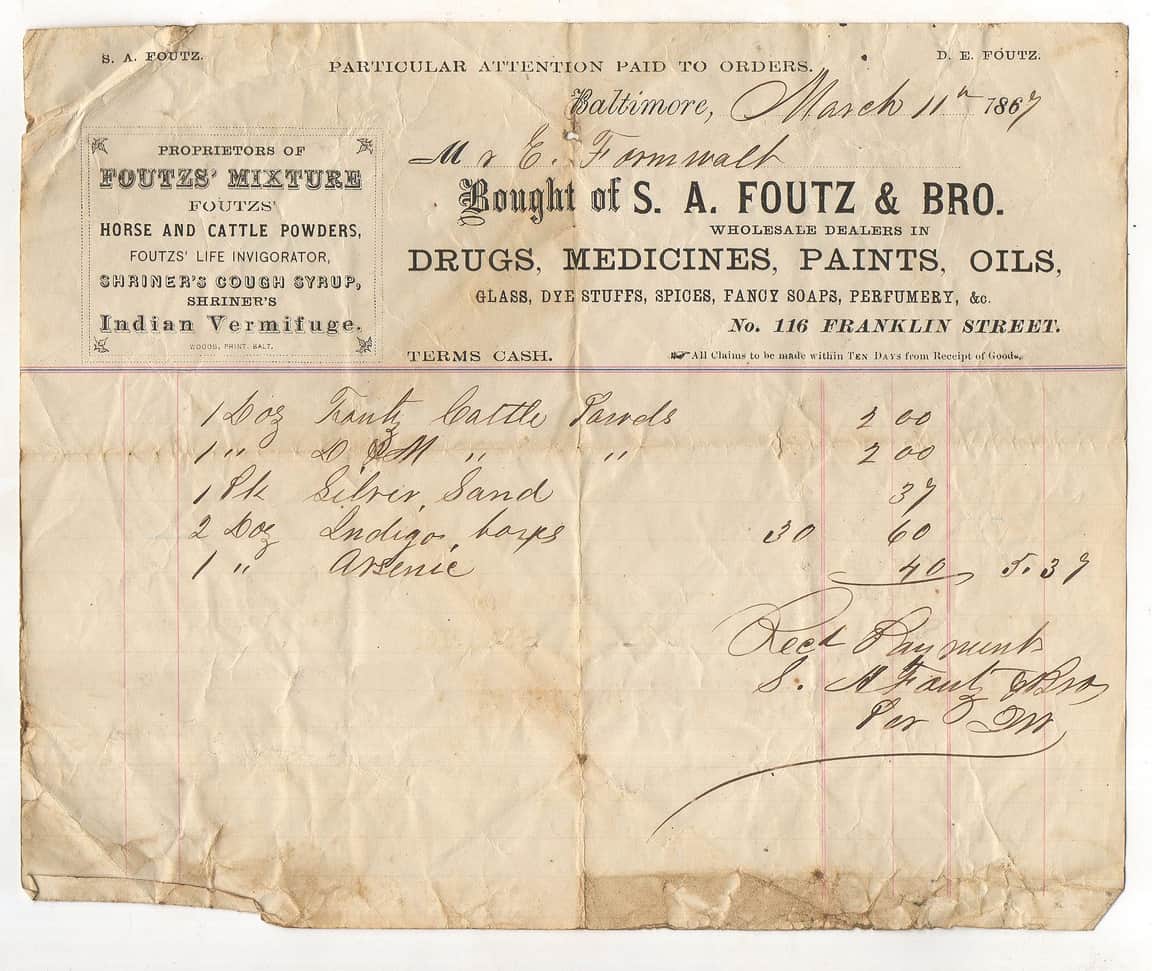 S. A. FOUTZ.
D. E. FOUTZ.
PARTICULAR ATTENTION PAID TO ORDERS.
Baltimore, March 11th 1867
Mr E. Formwalt
Bought of S. A. FOUTZ & BRO.
WHOLESALE DEALERS IN
DRUGS, MEDICINES, PAINTS, OILS,
GLASS, DYE STUFFS, SPICES, FANCY SOAPS, PERFUMERY, &c.
No. 116 FRANKLIN STREET.
TERMS CASH.
All Claims to be made within TEN DAYS from Receipt of Goods.
PROPRIETORS OF
FOUTZS' MIXTURE
FOUTZS'
HORSE AND CATTLE POWDERS,
FOUTZS' LIFE INVIGORATOR,
SHRINER'S COUGH SYRUP,
SHRINER'S
Indian Vermifuge.
WOODS, PRINT. BALT.
1 Doz Foutz Cattle Powds 2 00
1 " D. & M " " 2 00
1 Pk Silver Sand 37
2 Doz Indigo boxes 30 60
1 " Arsenic 40 5.37
Recd Payment
S. A Foutz & Bro
Per